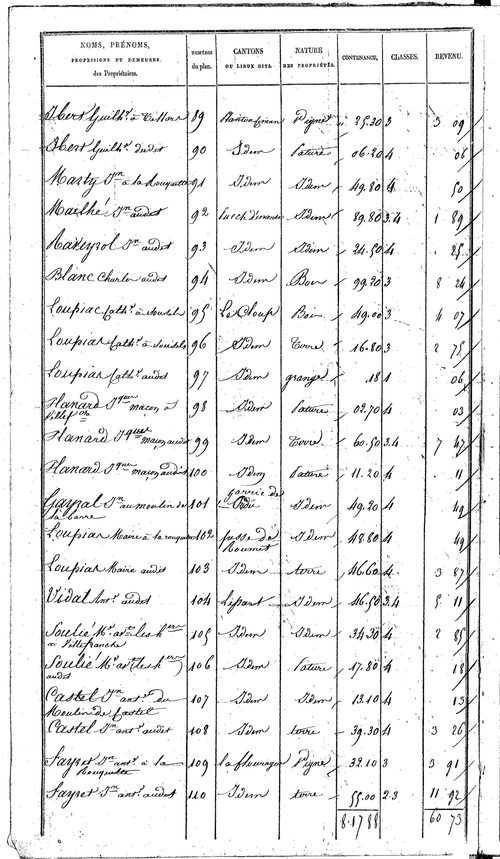 NOMS, PRÉNOMS, PROFESSIONS ET DEMEURES des Propriétaires. NUMÉROS du plan. CANTONS OU LIEUX DITS. NATURE DES PROPRIÉTÉS. CONTENANCE. CLASSES. REVENU.
Ibert Guilh.e à 89 Vigne 25.30 3 3 09
Ibert Guilh.e dudit 90 Idem Pature 06.20 4 . 06
Marty Jn à la Rouquette 91 Idem Idem 49.80 4 . 50
Jn audit 92 Idem 89.80 3.4 1 89
Raveyrol Jn audit 93 Idem Idem 24.50 4 . 25
Blanc Charles audit 94 Idem Bois 99.20 3 8 24
Loupiac Cath.e à 95 Le Cloup Bois 49.00 3 4 07
Loupiac Cath.e à 96 Idem Terre 16.80 3 2 75
Loupiac Cath.e audit 97 Idem grange .18 1 06
Flanard Jques maçon à Villefche 98 Idem Pature 02.70 4 03
Flanard Jques maçon audit 99 Idem Terre 60.50 3.4 7 47
Flanard Jques maçon audit 100 Idem Pature 11.20 4 11
Jn au moulin de la barre 101 Idem 49.20 4 49
Loupiac Maire à la rouquette 102 Idem 48.80 4 49
Loupiac Maire audit 103 Idem terre 46.60 4 3 87
Vidal Ant. audit 104 Idem 46.50 3.4 5 11
Soulié les her à Villefranche 105 Idem Idem 34.30 4 2 85
Soulié les her audit 106 Idem Pature 17.80 4 . 18
Castel Jn ant. du Moulin de Castel 107 Idem Idem 13.10 4 . 13
Castel Jn ant. audit 108 Idem terre 39.30 4 3 26
Fayret Jn ant. à la Rouquette 109 Vigne 32.10 3 3 91
Fayret Jn ant. audit 110 Idem terre 55.00 2.3 11 92
8.17 88 60 73